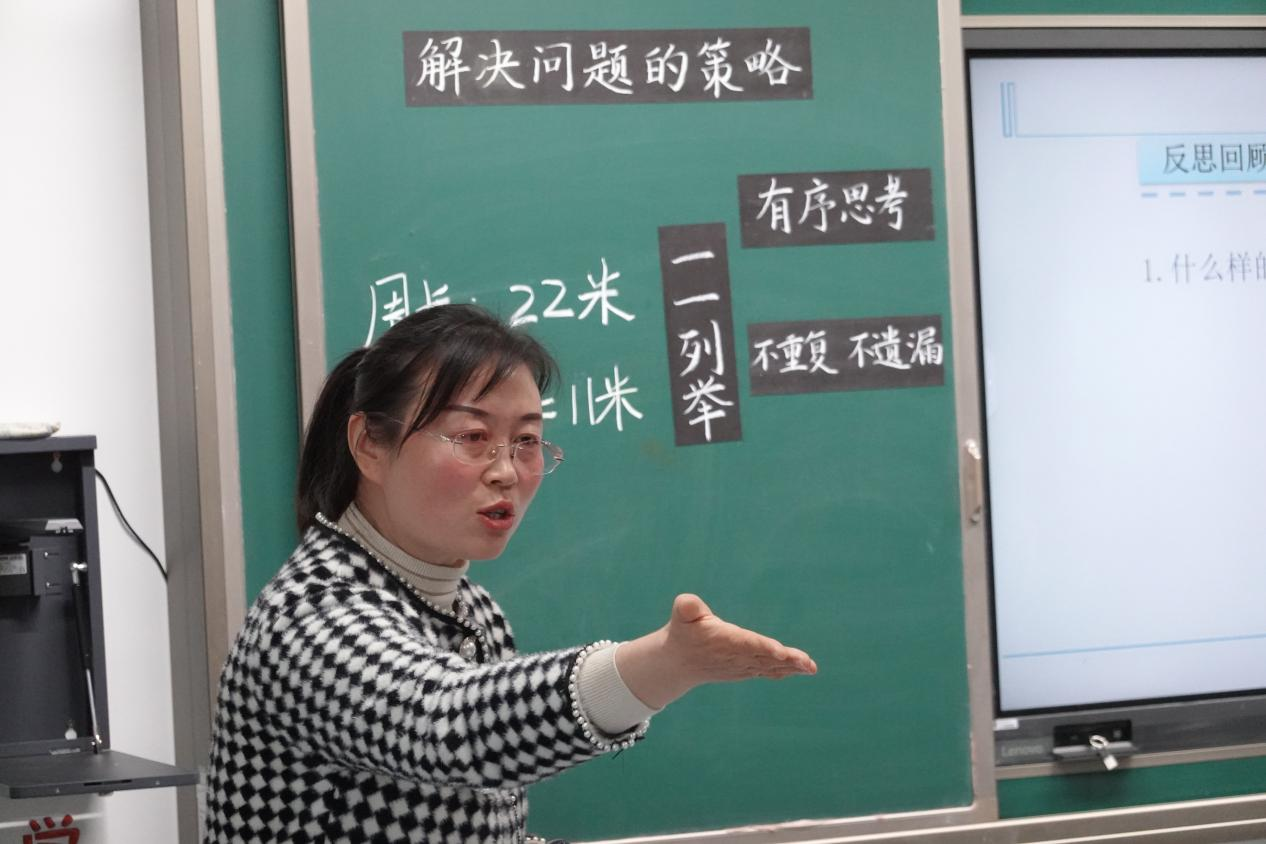 解决问题的策略
有序思考
一一列举
周长：22米
不重复 不遗漏
=11米
反思回顾
1.什么样的
Lenovo
学